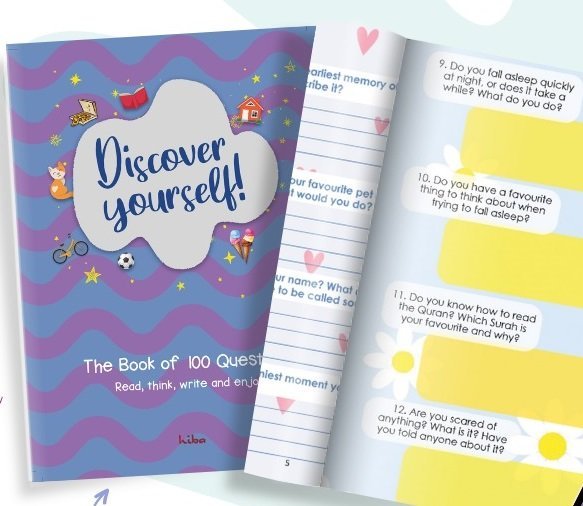 Discover
yourself!
The Book of 100 Quest
Read, think, write and enjo
hiba
earliest memory o
cribe it?
our favourite pet
t would you do?
ur name? What
to be called so
niest moment yo
5
9. Do you fall asleep quickly
at night, or does it take a
while? What do you do?
10. Do you have a favourite
thing to think about when
trying to fall asleep?
11. Do you know how to read
the Quran? Which Surah is
your favourite and why?
12. Are you scared of
anything? What is it? Have
you told anyone about it?